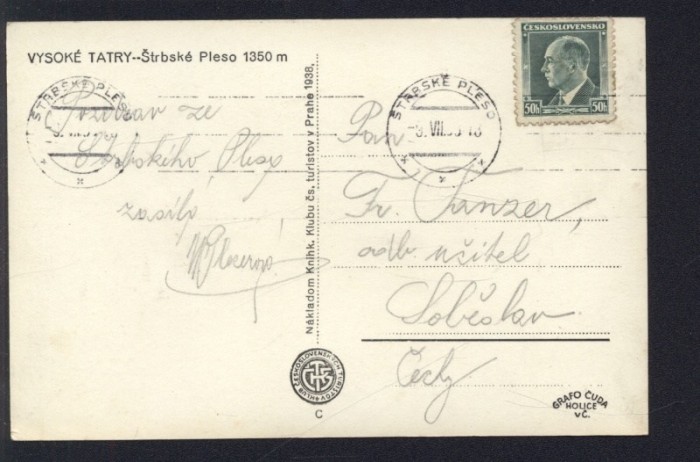 VYSOKÉ TATRY--Štrbské Pleso 1350 m
ŠTRBSKÉ PLESO
Pozdrav ze
Štrbského Plesa
zasílá
Nákladom Knihk. Klubu čs. turistov v Prahe 1938.
KLUB ČESKOSLOVENSKÝCH TURISTOV
KČST
C
ČESKOSLOVENSKO
50h
50h
ŠTRBSKÉ PLESO
Pan
Fr. Tanzer,
odb. učitel
Soběslav
Čechy
GRAFO ČUDA
HOLICE
v Č.